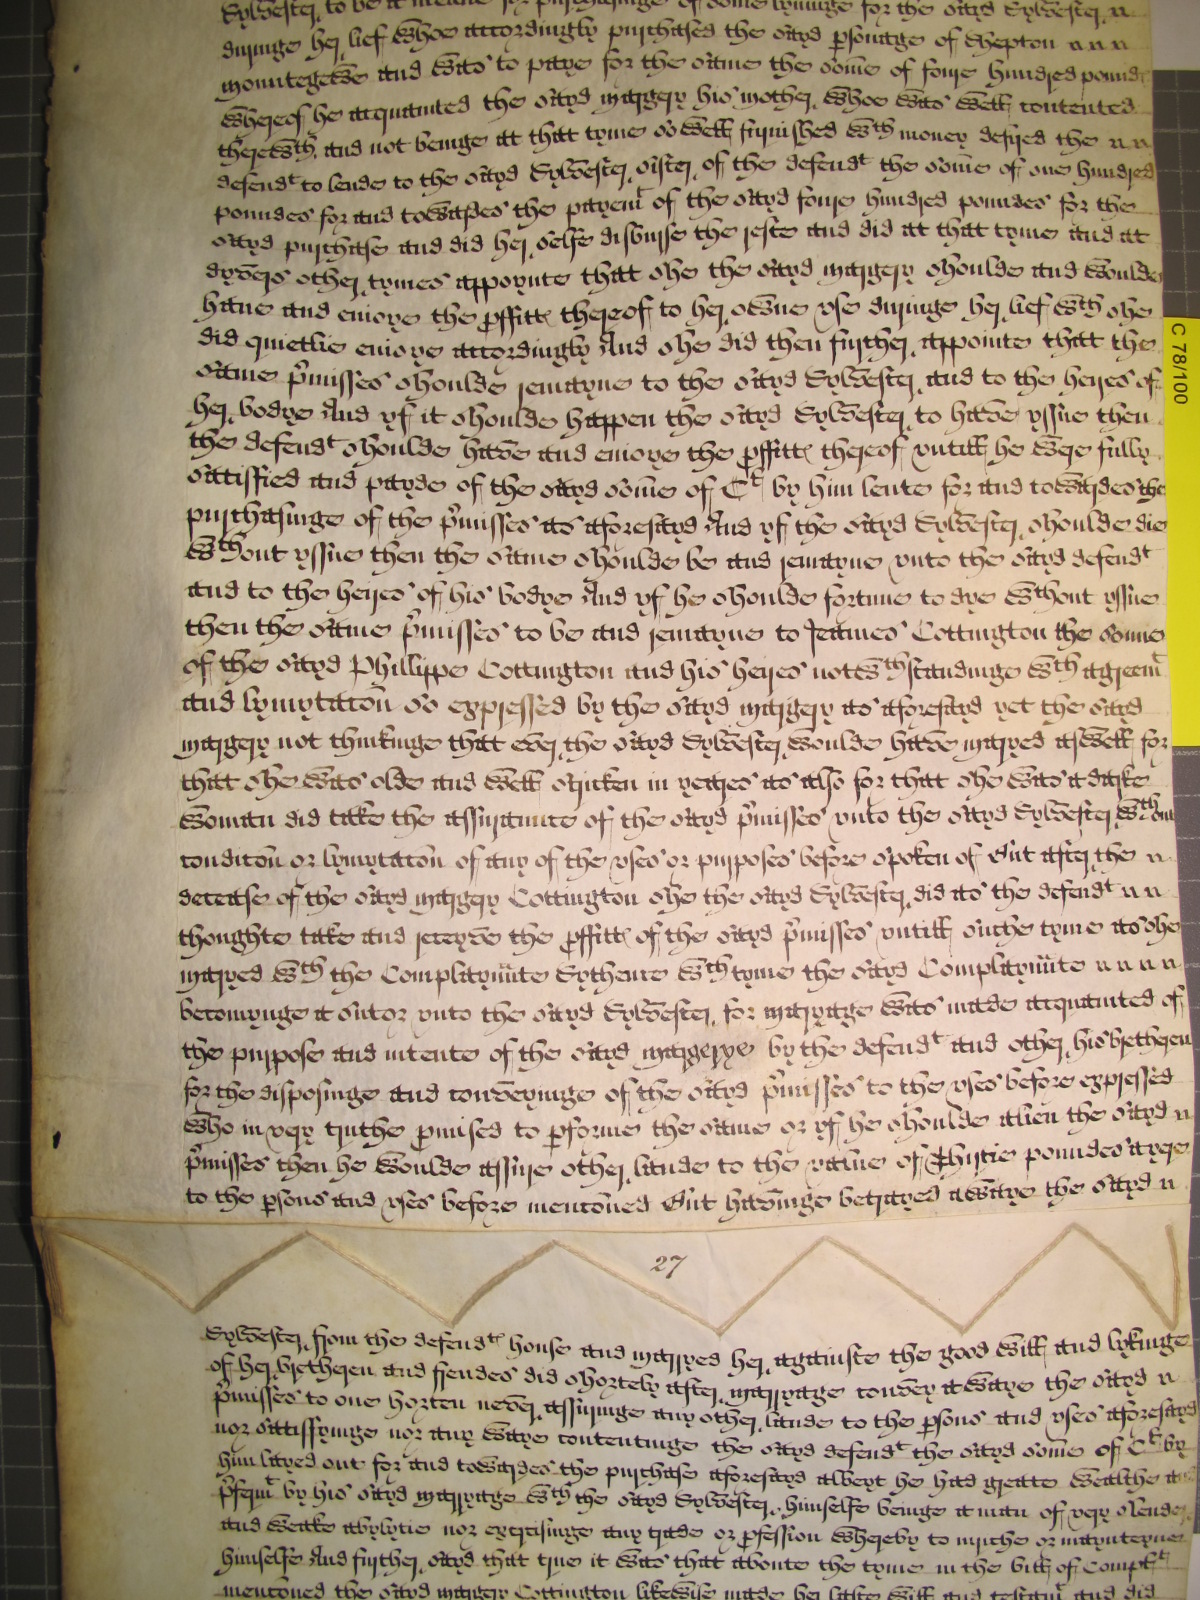 Sylvester, to be a meane for purchasinge of some lyvinge for the sayd Sylvester,
duringe her lief whoe accordingly purchased the sayd psonage of
mountegewe and was to paye for the same the some of foure hundred pound
whereof he acquainted the sayd margery his mother, whoe was well contented
therewth, and not beinge at that tyme so well furnished wth money desired the
defendt to lende to the sayd Sylvester, sister, of the defendt the some of one hundred
poundes for and towardes the paymt of the sayd foure hundred poundes for the
sayd purchase and did her selfe disburse the reste and did at that tyme and at
dyvers other, tymes appoynte that she the sayd margery shoulde and woulde
have and enioye the pffitts thereof to her, owne vse duringe her, lief wch she
did quietlie enioye accordingly And she did then further, appointe that the
same pmisses shoulde remayne to the sayd Sylvester, and to the heires of
her, bodye And yf it shoulde happen the sayd Sylvester, to have yssue then
the defendt shoulde have and enioye the pffitts thereof vntill he were fully
satisfied and payde of the sayd some of Cli by him lente for and towardes the
purchasinge of the pmisses as aforesayd And yf the sayd Sylvester, shoulde die
wthout yssue then the same shoulde be and remayne vnto the sayd defendt
and to the heires of his bodye And yf he shoulde fortune to dye wthout yssue
then the same pmisses to be and remayne to Jeames Cottington the sonne
of the sayd Phillippe Cottington and his heires notwthstandinge wch agreemt
and lymytacon so expressed by the sayd margery as aforesayd yet the sayd
margery not thinkinge that ever, the sayd Sylvester, woulde have maryed aswell for
that she was olde and well stricken in yeares as also for that she was a darke
woman did take the assuraunce of the sayd pmisses vnto the sayd Sylvester wthout
condicon or lymytacon of any of the vses or purposes before spoken of But after, the
decease of the sayd margery Cottington she the sayd Sylvester, did as the defendt
thoughte take and receyve the pffitts of the sayd pmisses vntill suche tyme as she
maryed wth the Complaynnte Sythence wch tyme the sayd Complaynnte
becomynge a sutor vnto the sayd Sylvester, for maryage was made acquainted of
the purpose and intente of the sayd margerye by the defendt and other, his bretheren
for the disposinge and conveyinge of the sayd pmisses to the vses before expressed
who in very truthe pmised to pforme the same or yf he shoulde alien the sayd
pmisses then he woulde assure other, lande to the value of Thirtie poundes a yere
to the psons and vses before mencóned But havinge betrayed awaye the sayd
27
Sylvester, from the defendts house and marryed her, againste the good will and lykinge
of her, bretheren and frendes did shortely after, marryage convey awaye the sayd
pmisses to one horton never, assuringe any other, lande to the psons and vses aforesayd
nor satisfyinge nor any waye contentinge the sayd defendt the sayd some of Cli by
him layed out for and towardes the purchase aforesayd albeyt he had greate wealthe and
pfermt by his sayd marryage wth the sayd Sylvester, himselfe beinge a man of very slender
and weake abylytie nor exercisinge any trade or pfession whereby to or maynteyne
himselfe And further, sayd that true it was that aboute the tyme in the bill of Complt
mencóned the sayd margery Cottington likewise made her laste will and testamt and did